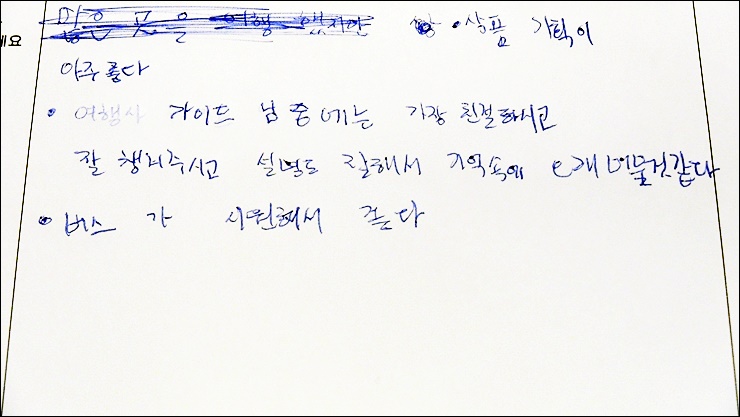 많은 곳을 여행 했지만 상품 가격이
아주 좋다
세요
• 여행사 가이드 님 중에는 가장 친절하시고
잘 챙겨주시고 설명도 잘해서 기억속에 오래 머물것같다
• 버스 가 시원해서 좋다